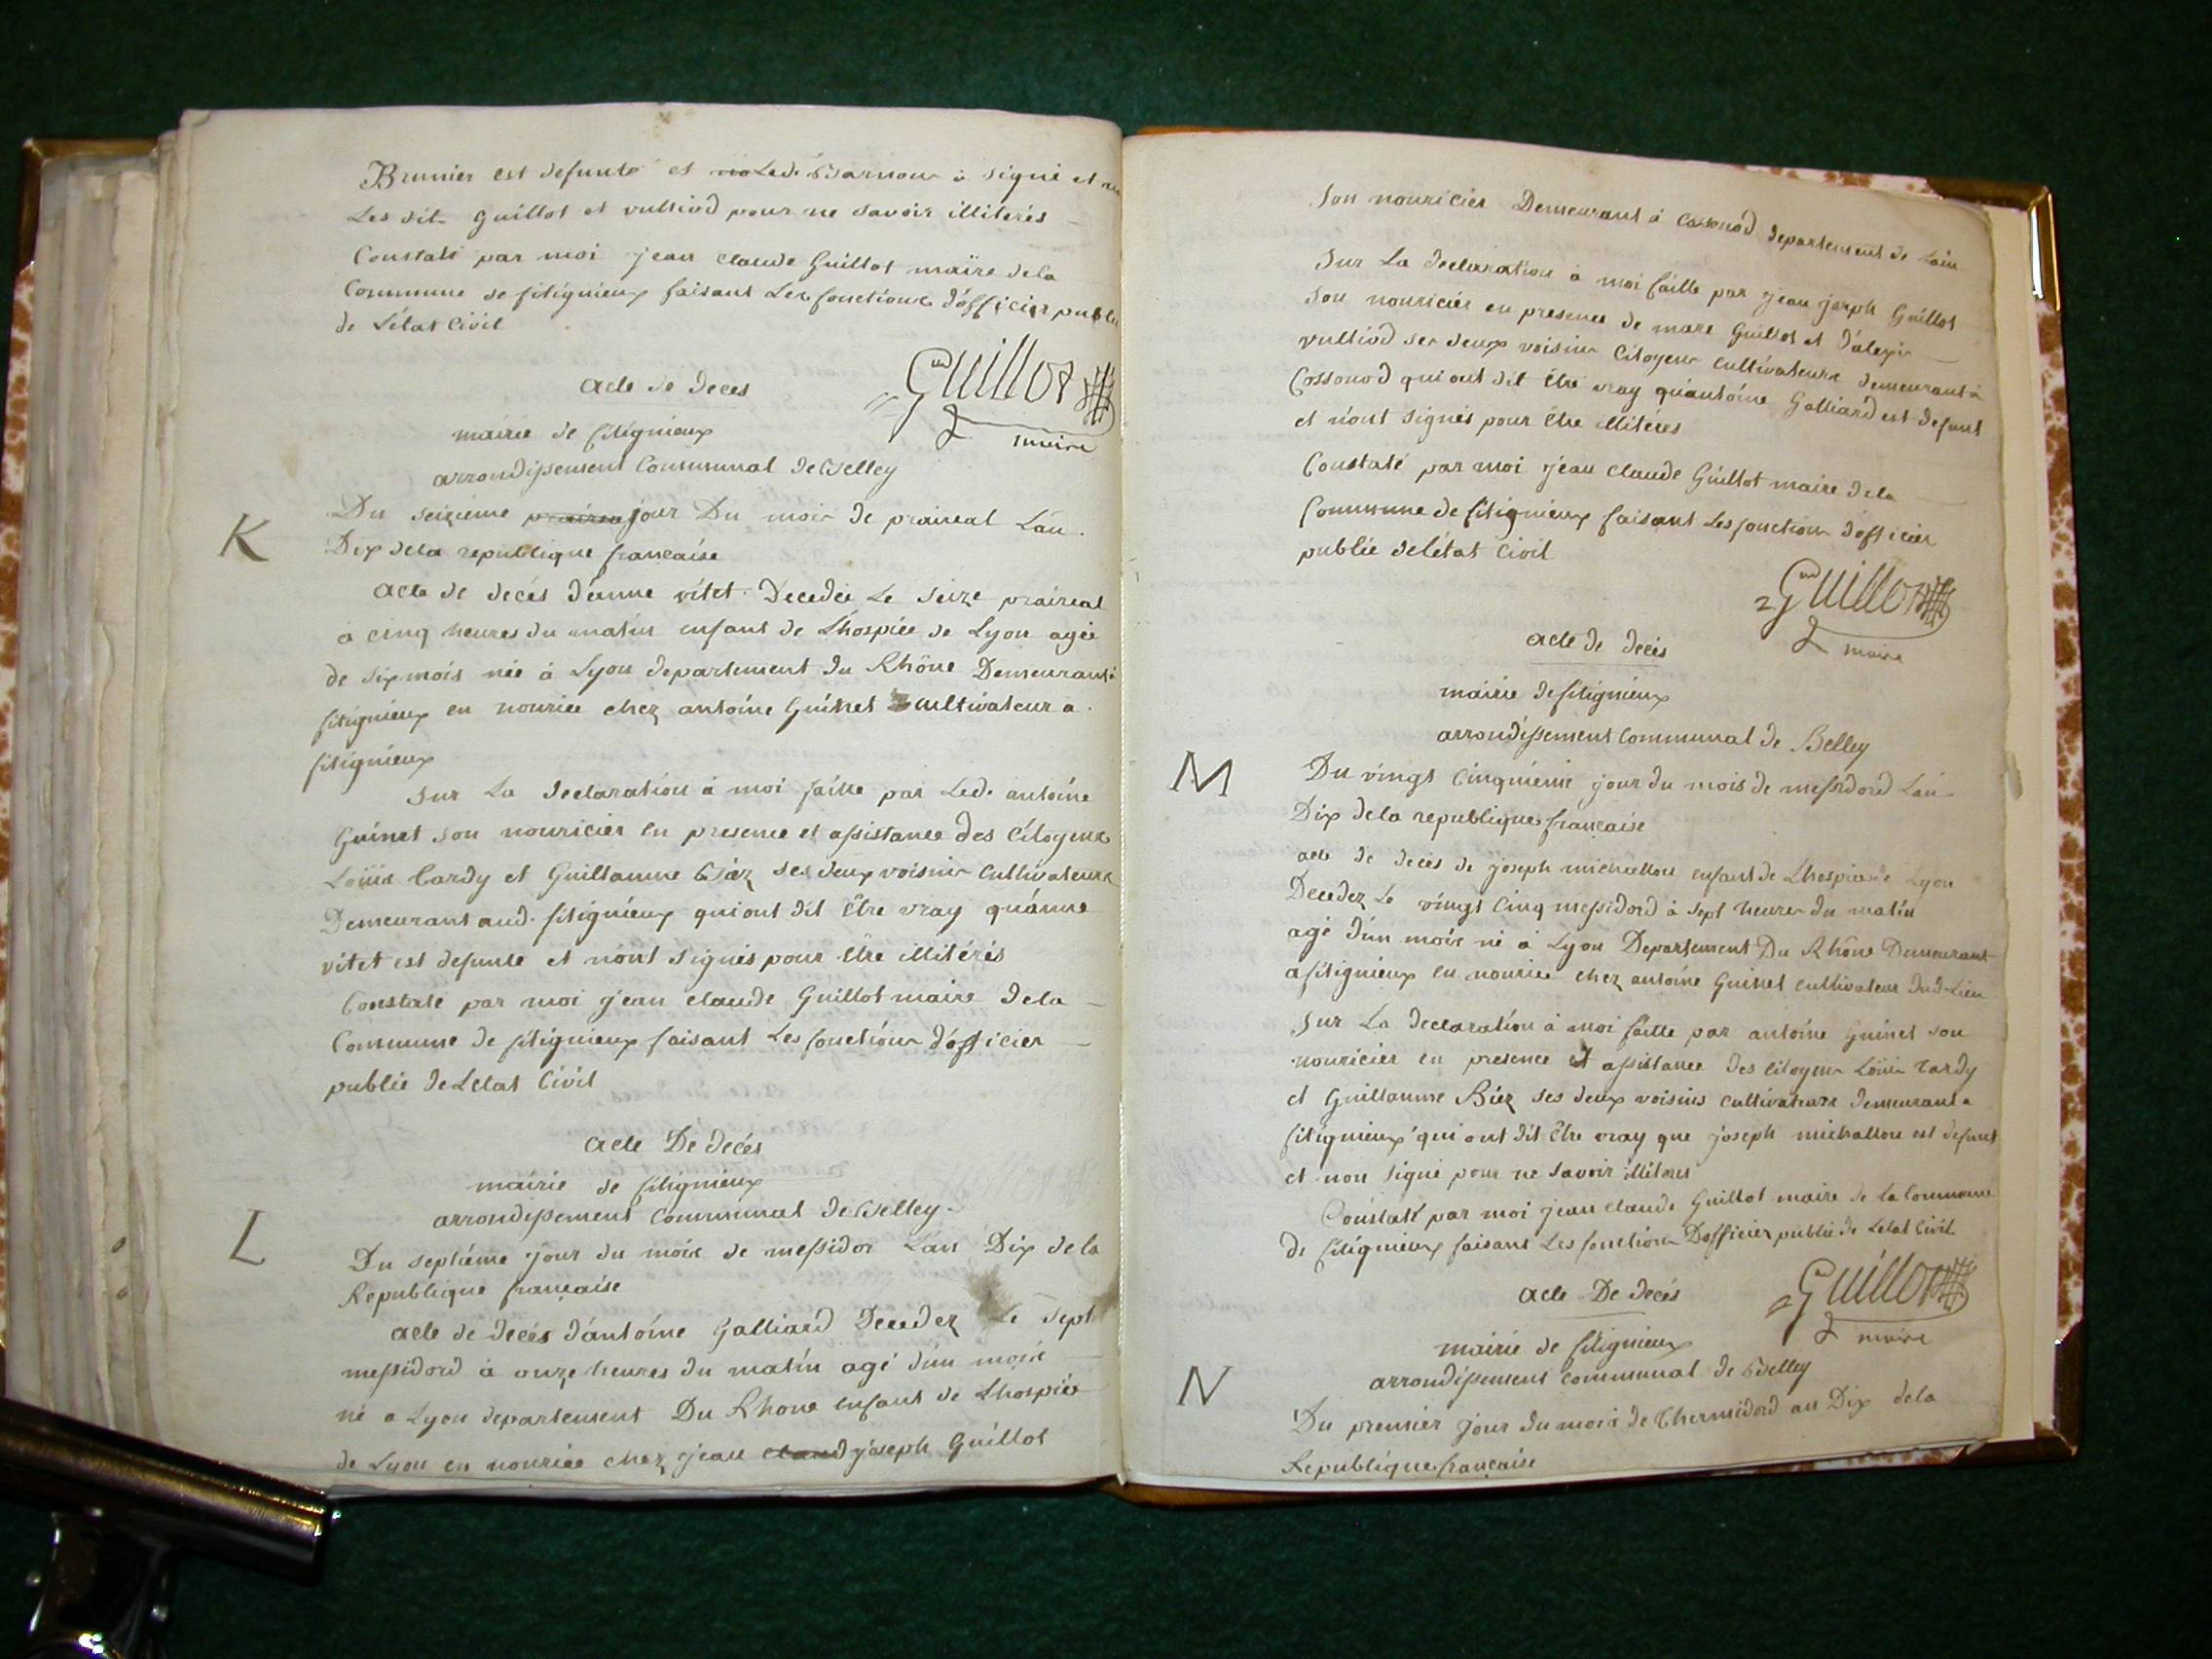 Brunier est defunte et Led. Barnou à signé et
Les dit Guillot et vulliod pour ne savoir illiterés
Constaté par moi jean claude Guillot maïre dela
Commune de fitignieux faisant Les fonctions d'officier public
de L'état Civil
Guillot
maire
acte de deces
mairie de fitignieux
arrondissement Communal de Belley
K
Du seizieme jour Du mois de praireal L'an
Dix dela republique française
acte de decés d'anne vitet Decedée Le seize praireal
a cinq heures du matin enfant de L'hospice de Lyon agée
de six mois née à Lyon departement du Rhône Demeurant à
fitignieux en nourice chez antoine Guinet cultivateur a
fitignieux
Sur La declaration à moi faitte par Led. antoine
Guinet son nouricier en presence et assistance des Citoyens
Loüis tardy et Guillaume Biéz ses deux voisins Cultivateurs
Demeurant aud. fitignieux qui ont dit être vray qu'anne
vitet est defunte et n'ont signés pour être illitérés
Constaté par moi jean claude Guillot maire dela
Commune de fitignieux faisant Les fonctions d'officier
public de L'etat Civil
acte De decés
mairie de fitignieux
arrondissement Communal de Belley
L
Du septiéme jour du mois de messidor L'an Dix de la
Republique française
acte de decés d'antoine Galliard Decedez Le sept
messidord à onze heures du matin agé d'un mois
né a Lyon departement Du Rhone enfant de L'hospice
de Lyon en nourice chez jean claud joseph Guillot
son nouricier Demeurant à Cossonod departement de Lain
Sur La declaration à moi faitte par jean joseph Guillot
son nouricier en presence de marc Guillot et d'alexis
vulliod ses deux voisins Citoyens cultivateurs demeurant à
Cossonod qui ont dit être vray qu'antoine Galliard est defunt
et n'ont signés pour être illitérés
Constaté par moi jean claude Guillot maire dela
Commune de fitignieux faisant Les fonctions d'officier
public de l'état Civil
Guillot
maire
acte de decés
mairie de fitignieux
arrondissement Communal de Belley
M
Du vingt cinquieme jour du mois de messidord L'an
Dix dela republique française
acte de decés de joseph michallon enfant de L'hospice de Lyon
Decedez Le vingt Cinq messidord à sept heures du matin
agé d'un mois né à Lyon Departement Du Rhône Demeurant
a fitignieux en nourice chez antoine Guinet cultivateur dud. Lieu
Sur La declaration à moi faitte par antoine Guinet son
nouricier en presence et assistance des citoyens Loüis tardy
et Guillaume Biéz ses deux voisins cultivateurs demeurant a
fitignieux qui ont dit être vray que joseph michallon est defunt
et non signé pour ne savoir illiterés
Constaté par moi jean claude Guillot maire de la Commune
de fitignieux faisant Les fonctions D'officier public de L'etat Civil
Guillot
maire
acte De decés
mairie de fitignieux
arrondissement communal de Belley
N
Du premier jour du mois de Thermidord an Dix dela
Republique française